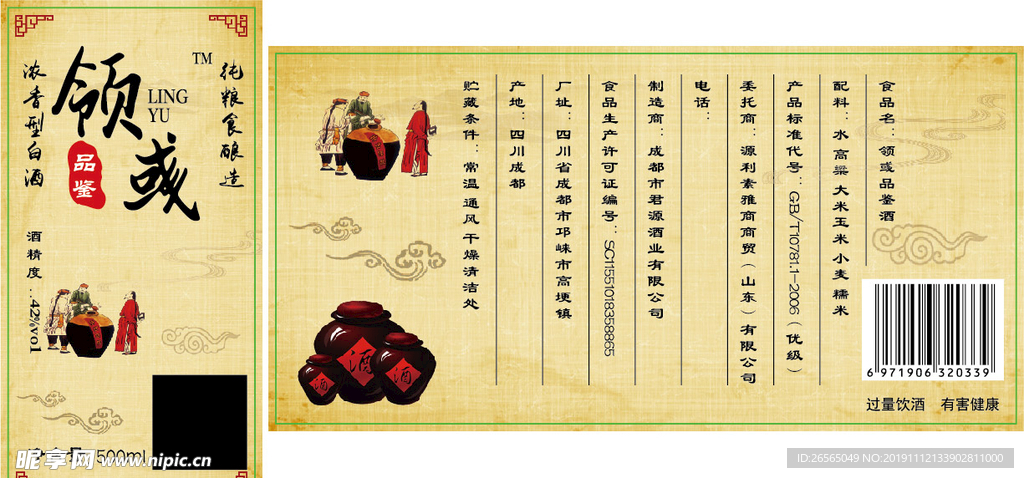 浓香型白酒
领彧
TM
LING
YU
品鉴
纯粮食酿造
酒精度:42%vol
500ml
昵享网 www.nipic.cn
食品名:领彧品鉴酒
配料:水 高粱 大米玉米小麦 糯米
产品标准代号:GB/T10781.1-2006(优级)
委托商:源利素雅商商贸(山东)有限公司
电话:
制造商:成都市君源酒业有限公司
食品生产许可证编号:SC11551018358865
厂址:四川省成都市邛崃市高埂镇
产地:四川成都
贮藏条件:常温通风干燥清洁处
酒
酒
酒
6 971906 320339
过量饮酒 有害健康
ID:26565049 NO:20191112133902811000